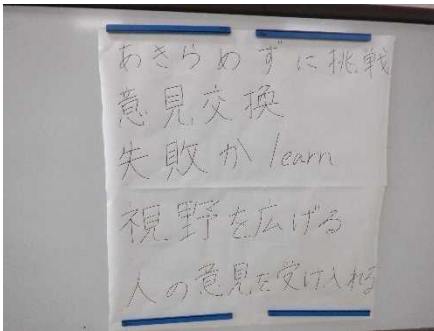 あきらめずに挑戦
意見交換
失敗か learn
視野を広げる
人の意見を受け入れる